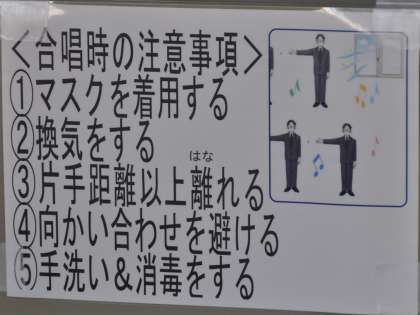 ＜合唱時の注意事項＞
①マスクを着用する
②換気をする
はな
③片手距離以上離れる
④向かい合わせを避ける
⑤手洗い＆消毒をする